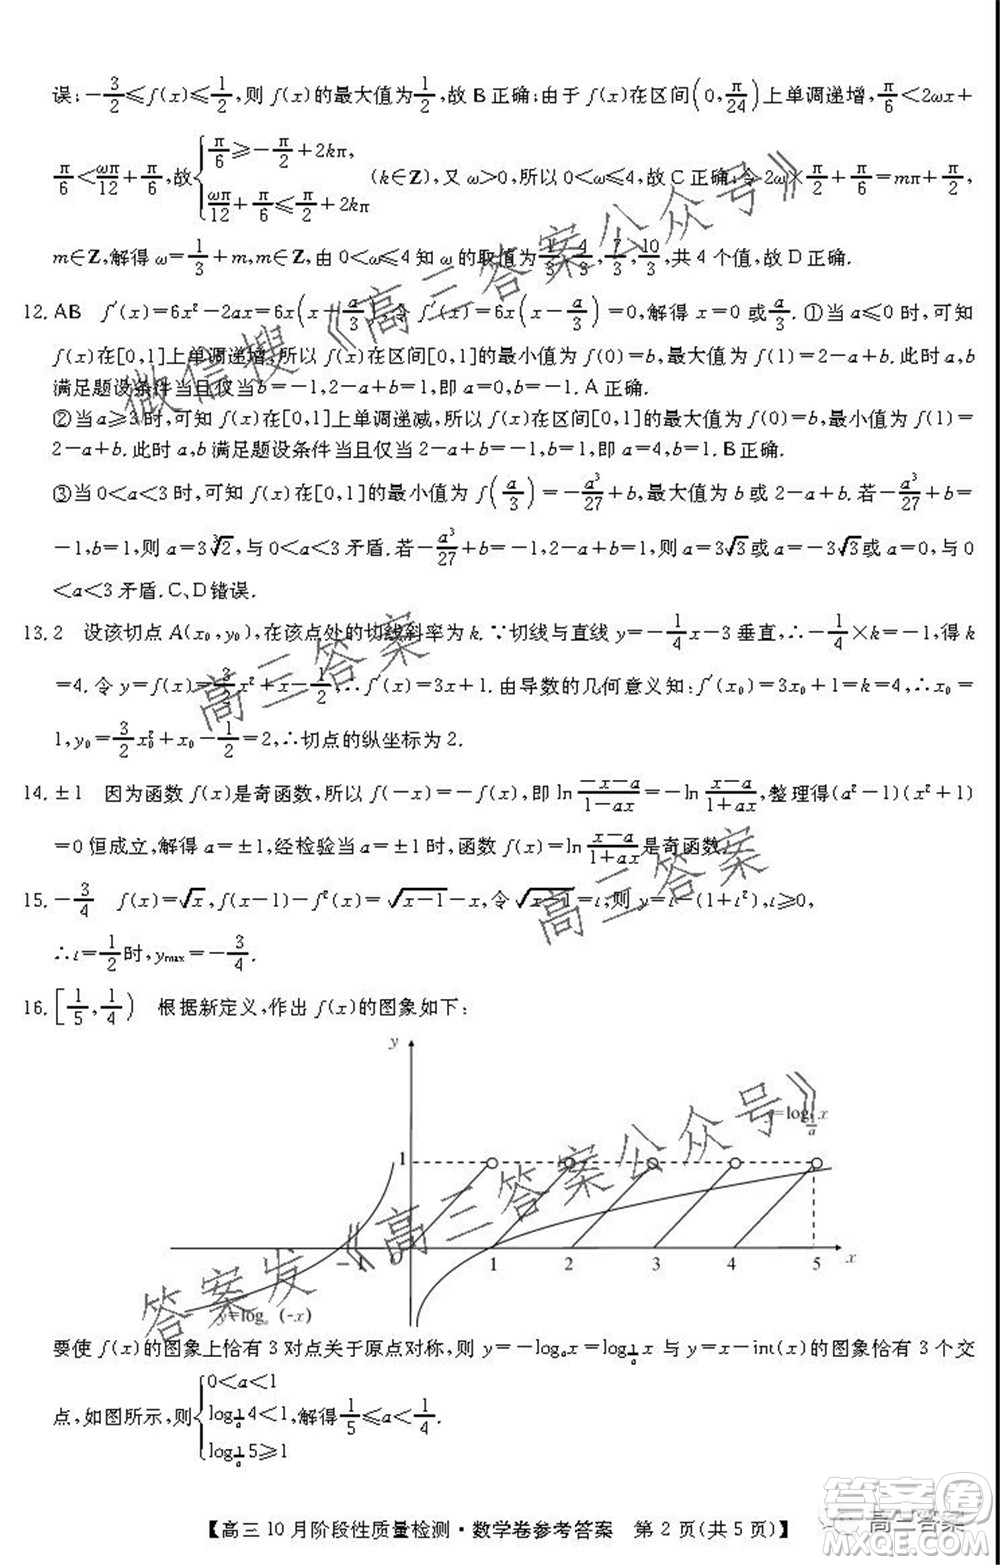 误；-3/2≤f(x)≤1/2，则 f(x)的最大值为1/2，故 B 正确；由于 f(x)在区间(0，π/24)上单调递增，π/6＜2ωx＋
π/6＜ωπ/12＋π/6，故{π/6≥-π/2＋2kπ， ωπ/12＋π/6≤π/2＋2kπ (k∈Z)，又 ω＞0，所以 0＜ω≤4，故 C 正确；令 2ω×π/2＋π/6＝mπ＋π/2，
m∈Z，解得 ω＝1/3＋m，由 0＜ω≤4 知 ω 的取值为1/3，4/3，7/3，10/3，共 4 个值，故 D 正确．
12. AB f′(x)＝6x²－2ax＝6x(x－a/3)，令 f′(x)＝6x(x－a/3)＝0，解得 x＝0 或a/3．①当 a≤0 时，可知
f(x)在[0,1]上单调递增，所以 f(x)在区间[0,1]的最小值为 f(0)＝b，最大值为 f(1)＝2－a＋b．此时 a,b
满足题设条件当且仅当 b＝－1，2－a＋b＝1，即 a＝0，b＝－1．A 正确．
②当 a≥3 时，可知 f(x)在[0,1]上单调递减，所以 f(x)在区间[0,1]的最大值为 f(0)＝b，最小值为 f(1)＝
2－a＋b．此时 a,b 满足题设条件当且仅当 2－a＋b＝－1，b＝1，即 a＝4，b＝1．B 正确．
③当 0＜a＜3 时，可知 f(x)在[0,1]的最小值为 f(a/3)＝－a³/27＋b，最大值为 b 或 2－a＋b．若－a³/27＋b＝
－1，b＝1，则 a＝3∛2，与 0＜a＜3 矛盾．若－a³/27＋b＝－1，2－a＋b＝1，则 a＝3√3或 a＝－3√3或 a＝0，与 0
＜a＜3 矛盾．C、D 错误．
13. 2 设该切点 A(x₀,y₀)，在该点处的切线斜率为 k．∵切线与直线 y＝－1/4x－3 垂直，∴－1/4×k＝－1，得 k
＝4．令 y＝f(x)＝3/2x²＋x－1/2，∴f′(x)＝3x＋1．由导数的几何意义知：f′(x₀)＝3x₀＋1＝k＝4，∴x₀＝
1，y₀＝3/2x₀²＋x₀－1/2＝2，∴切点的纵坐标为 2．
14. ±1 因为函数 f(x)是奇函数，所以 f(－x)＝－f(x)，即 ln(－x－a)/(1－ax)＝－ln(x－a)/(1＋ax)，整理得(a²－1)(x²＋1)
＝0 恒成立，解得 a＝±1，经检验当 a＝±1 时，函数 f(x)＝ln(x－a)/(1＋ax)是奇函数．
15. －3/4 f(x)＝√x，f(x－1)－f²(x)＝√(x－1)－x，令√(x－1)＝t，则 y＝t－(1＋t²)，t≥0，
∴t＝1/2时，y_max＝－3/4．
16. [1/5，1/4) 根据新定义，作出 f(x)的图象如下：
y
y=log_{1/a} x
1
－1 O 1 2 3 4 5 x
y=log_a (-x)
要使 f(x)的图象上恰有 3 对点关于原点对称，则 y＝－log_a x＝log_{1/a} x 与 y＝x－int(x)的图象恰有 3 个交
点，如图所示，则{0＜a＜1 log_{1/a} 4＜1，解得1/5≤a＜1/4． log_{1/a} 5≥1
【高三 10 月阶段性质量检测·数学卷参考答案 第 2 页(共 5 页)】
微信搜《高三答案公众号》
高三答案
高三答案
答案发《高三答案公众号》
答案圈
高三答案